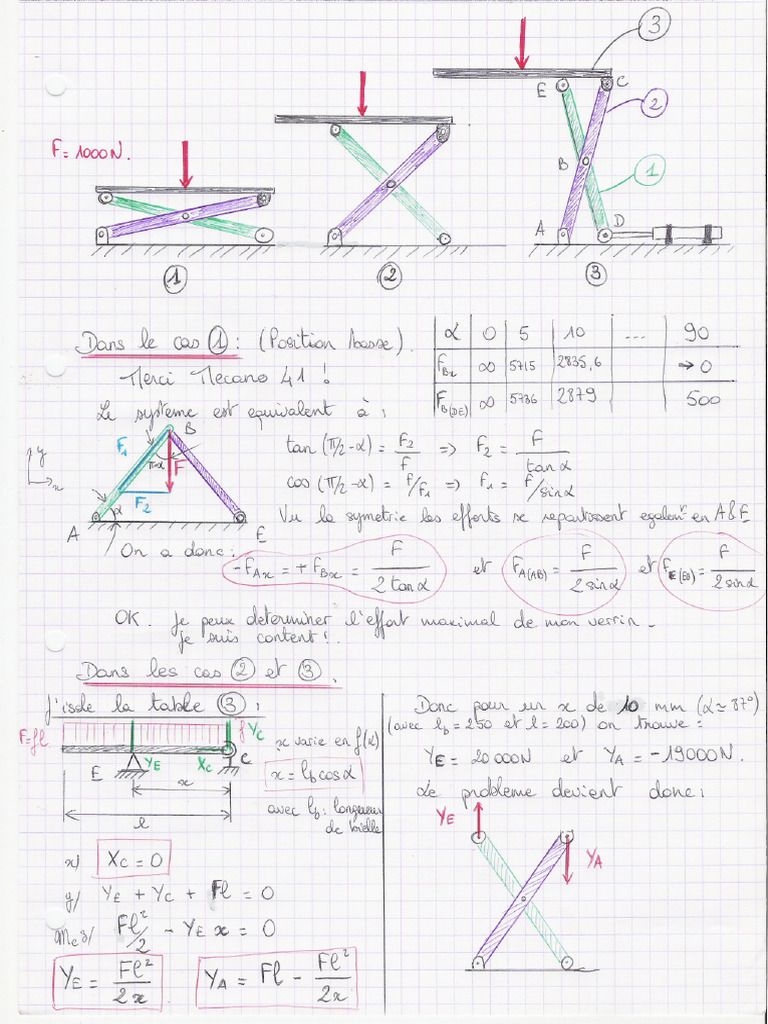 3
E
C
2
F = 1000N.
B
1
A
D
1
2
3
Dans le cas 1 : (Position basse).
Merci Mecano 41 !
α 0 5 10 ... 90
F_Bx ∞ 5715 2835,6 → 0
F_B(DE) ∞ 5736 2879 500
Le systeme est equivalent à :
B
F₁
π/2-α
F
y
x
F₂
α
A
E
tan (π/2-α) = F₂/F => F₂ = F/tanα
cos (π/2-α) = F/F₁ => F₁ = F/sinα
Vu la symetrie les efforts se repartissent egalemt en A & E
On a donc :
-F_Ax = + F_Bx = F/(2 tanα) et F_A(AB) = F/(2 sinα) et F_E(EB) = F/(2 sinα)
OK. Je peux determiner l'effort maximal de mon verrin.
Je suis content !..
Dans les cas 2 et 3.
J'isole la table 3 :
F=fl
f
Y_C
Y_E
X_C
C
E
x
l
x varie en f(α)
x = l_b cosα
avec l_b : longueur
de bielle
x/ X_C = 0
y/ Y_E + Y_C + Fl = 0
M_C z/ Fl²/2 - Y_E x = 0
Y_E = Fl²/2x
Y_A = Fl - Fl²/2x
Donc pour un x de 10 mm (α ≃ 87°)
(avec l_b = 250 et l = 200) on trouve :
Y_E = 20 000N et Y_A = -19000N.
Le probleme devient donc :
Y_E
Y_A